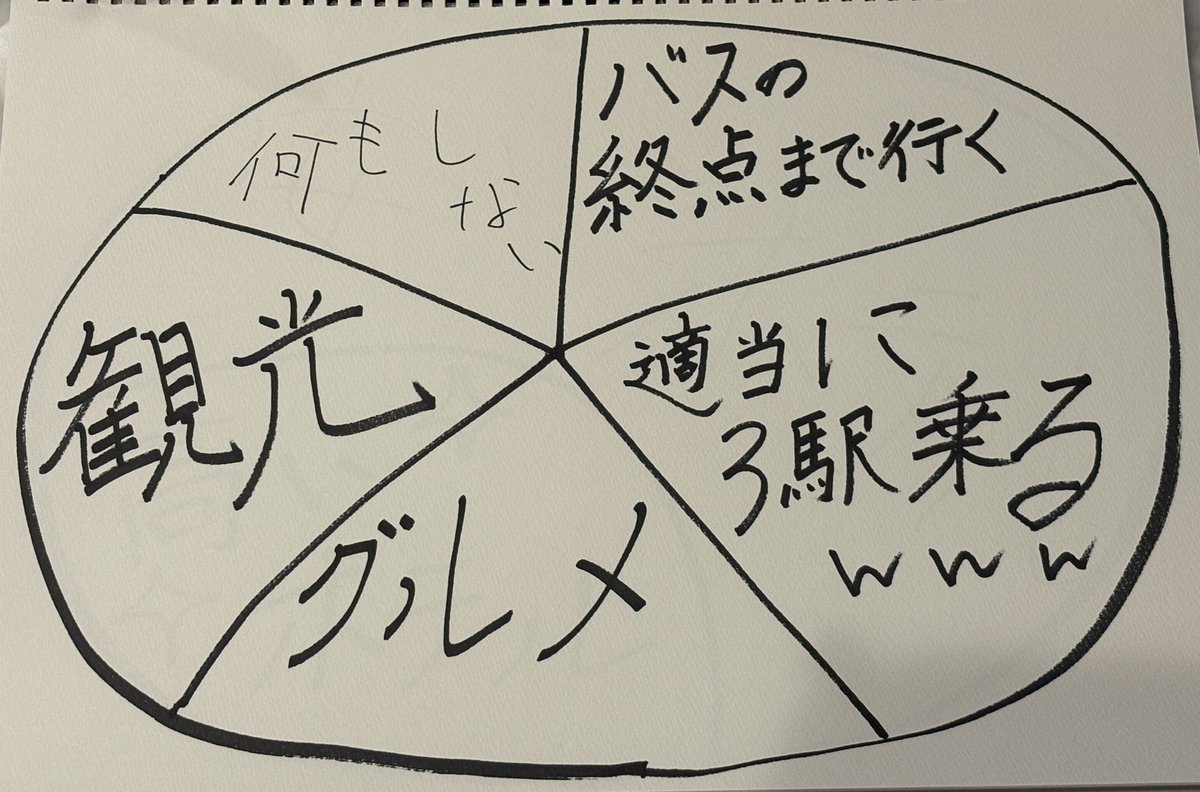 何もし
ない
バスの
終点まで行く
観光
適当に
3駅乗る
www
グルメ